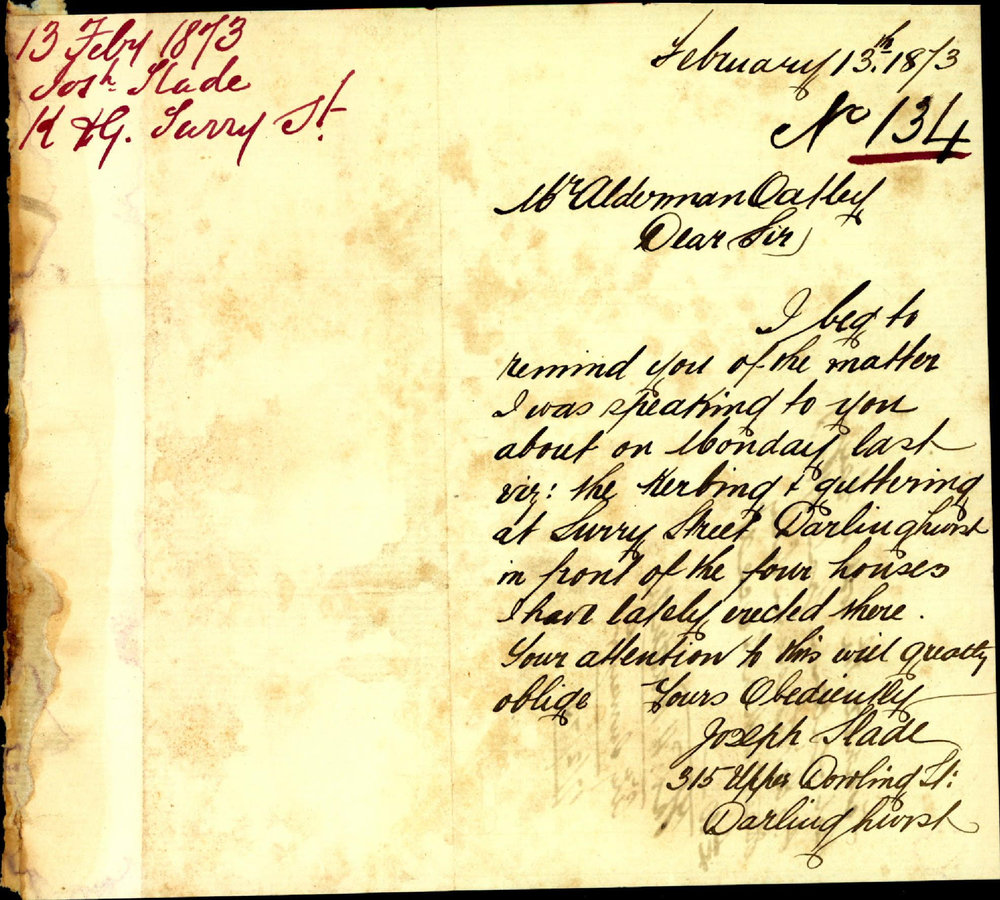 13 Feby 1873
Josh. Slade
K & G. Surry St.
February 13th. 1873
No 134
Mr Alderman Oatley
Dear Sir,
I beg to
remind you of the matter
I was speaking to you
about on Monday last
viz: the Kerbing & guttering
at Surry Street Darlinghurst
in front of the four houses
I have lately erected there.
Your attention to this will greatly
oblige Yours Obediently
Joseph Slade
315 Upper Dowling St:
Darlinghurst